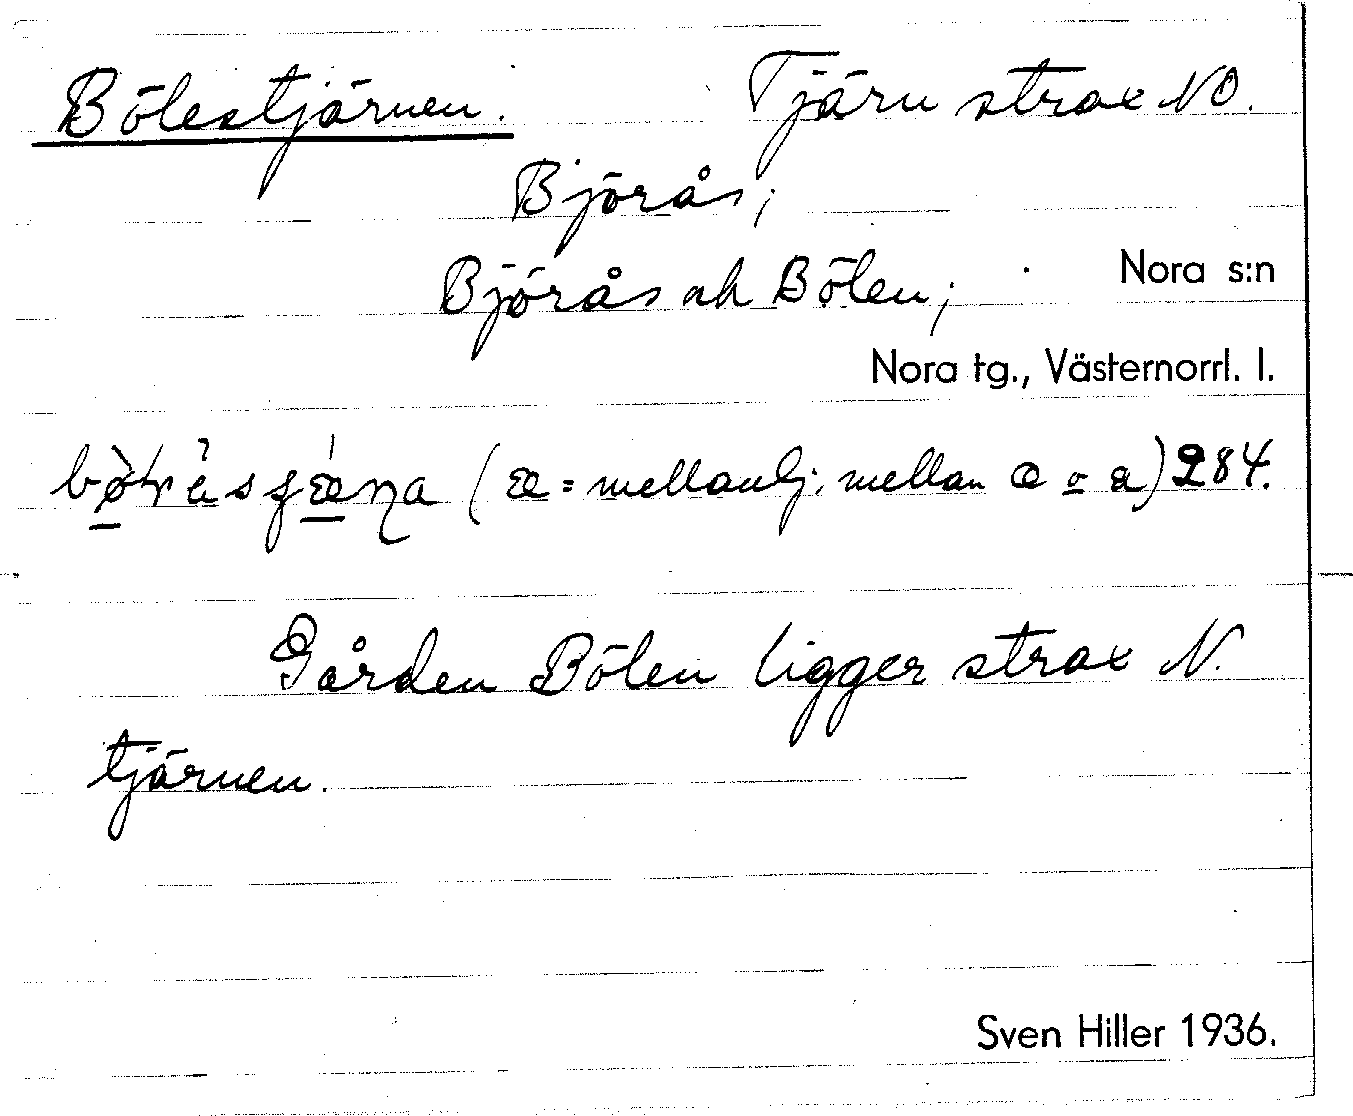 Bölestjärnen. Tjärn strax NO.
Björås;
Björås och Bölen; Nora s:n
Nora tg., Västernorrl. l.
(æ = mellanlj. mellan a o a) 284.
Gården Bölen ligger strax N.
tjärnen.
Sven Hiller 1936.